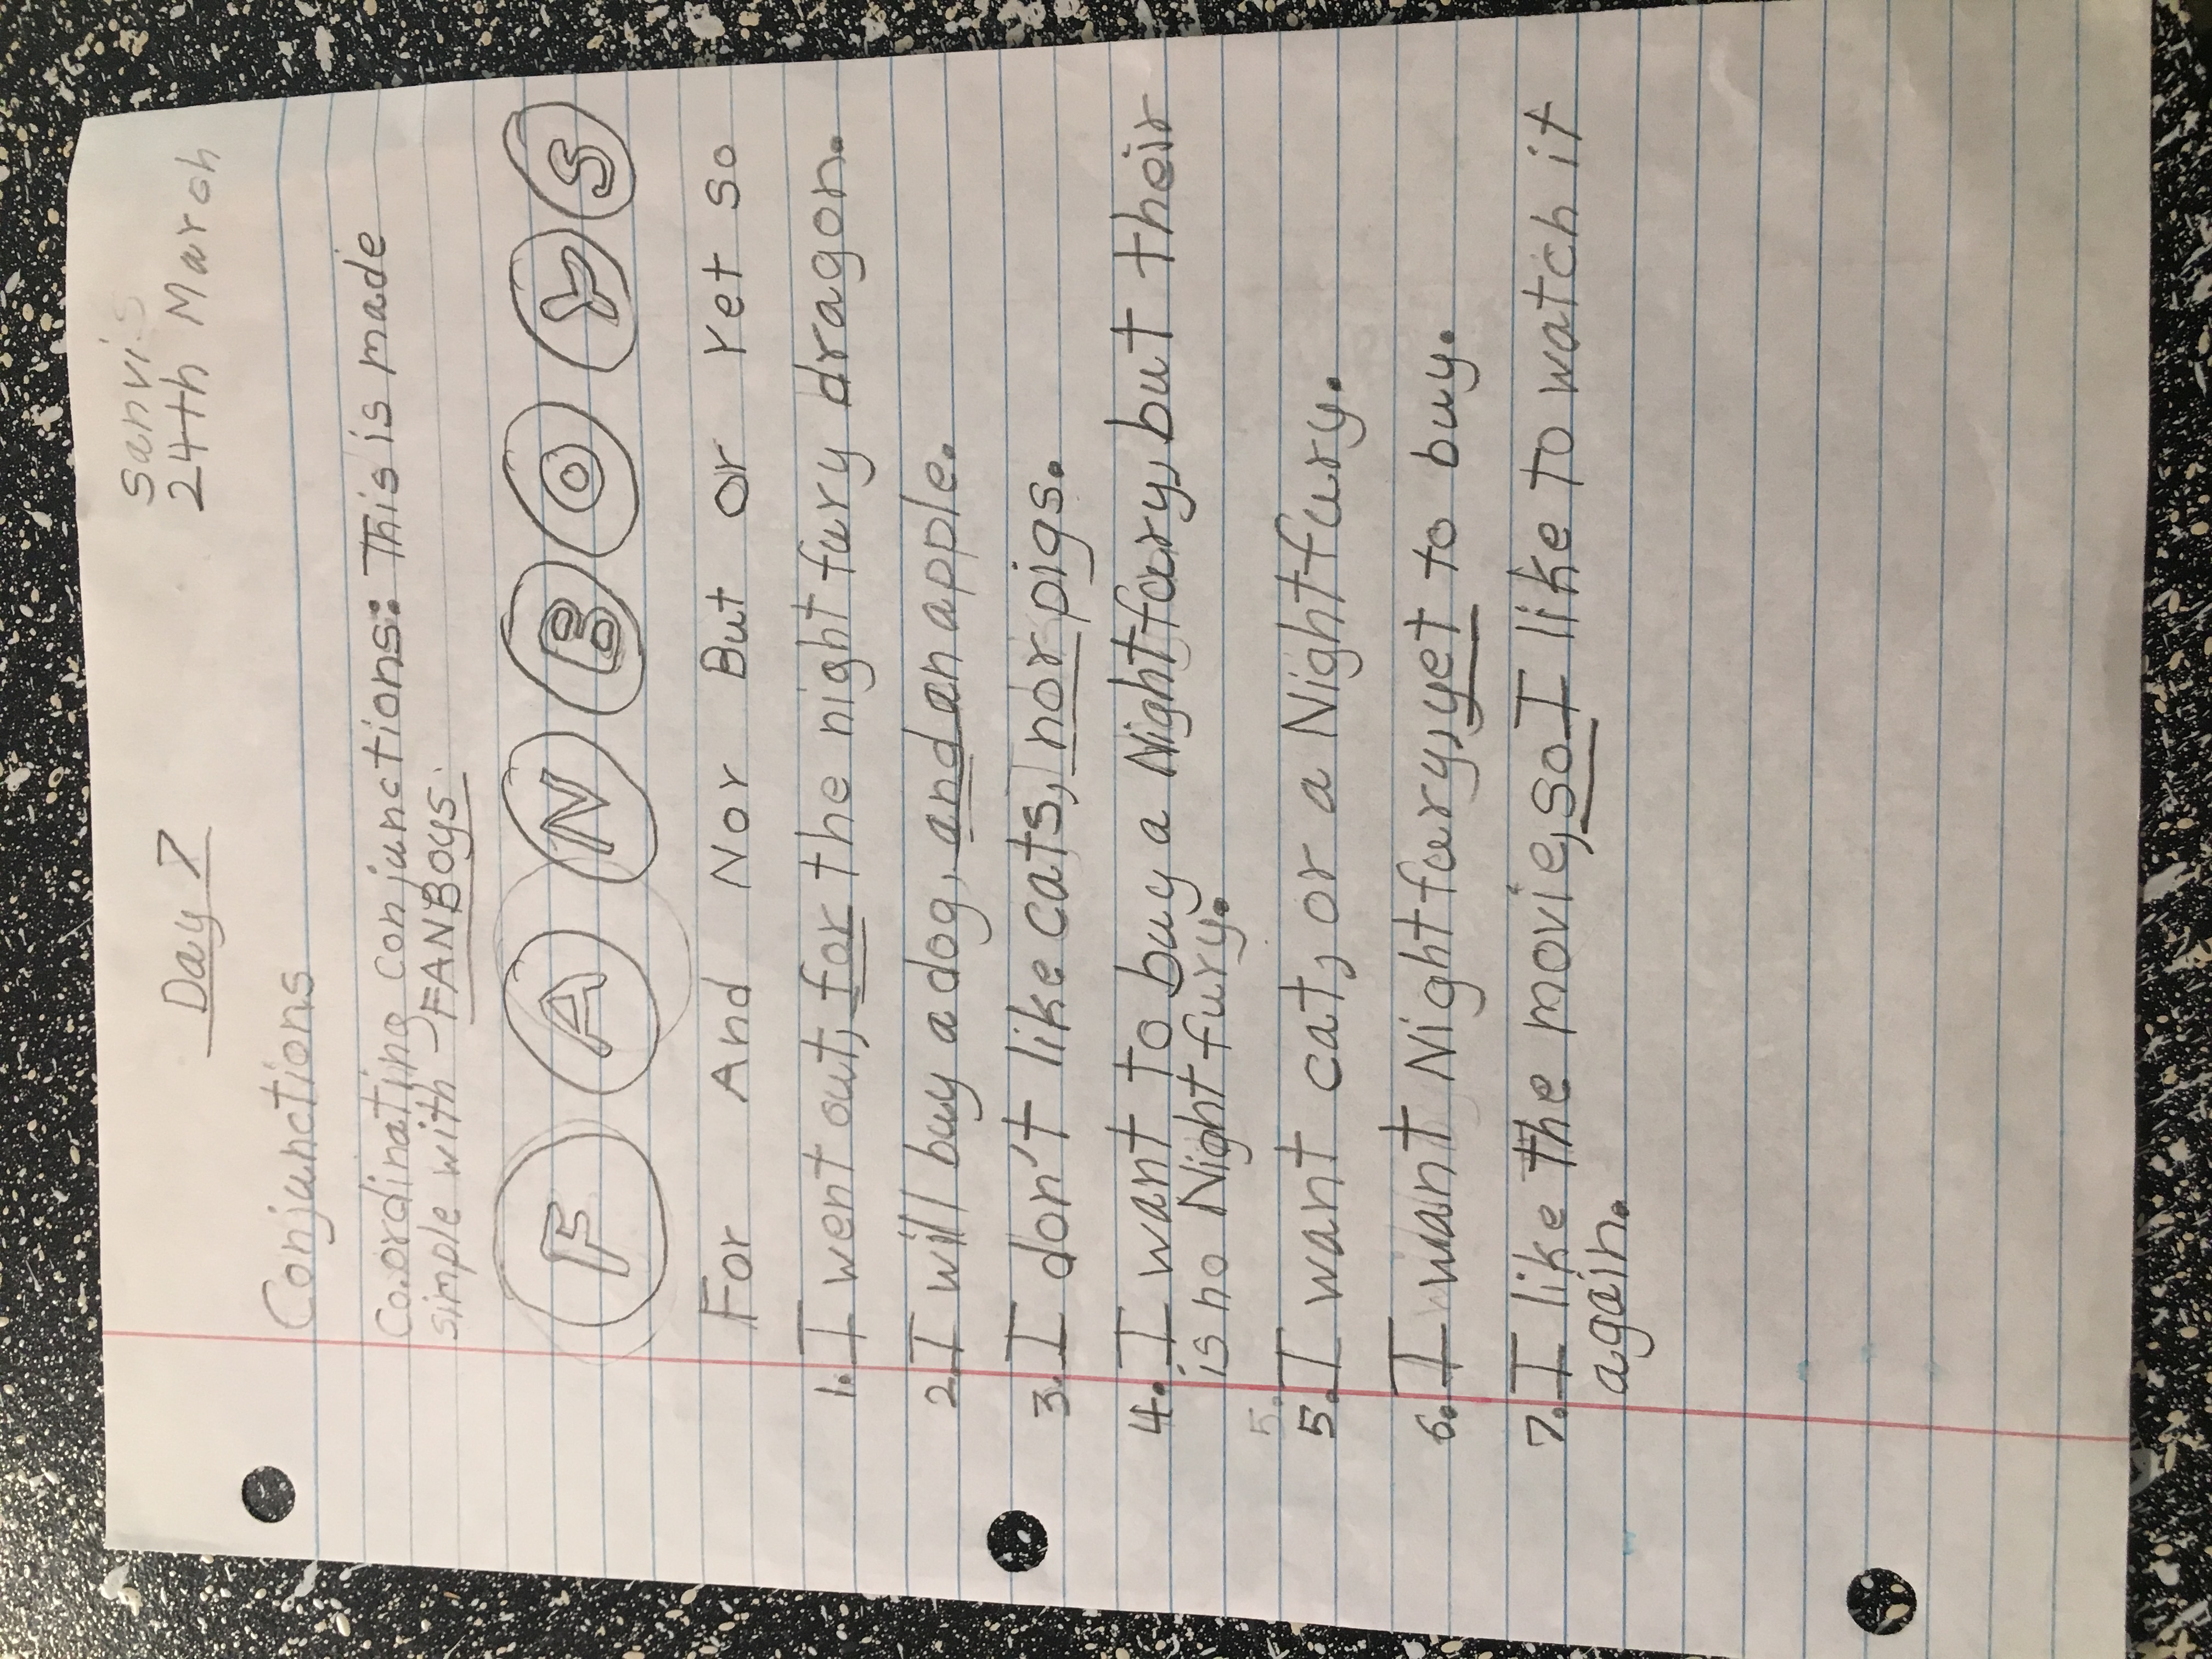 Sanvi.S
24th March
Day 7
Conjunctions
Co.ordinating conjunctions: This is made
simple with -FANBoys.
F A N B O Y S
For And Nor But Or Yet So
1. I went out, for the night fury dragon.
2. I will buy a dog, and an apple.
3. I don't like cats, nor pigs.
4. I want to buy a Nightfury, but their
is no Nightfury.
5.
5. I want cat, or a Nightfury.
6. I want Nightfury, yet to buy.
7. I like the movie, so I like to watch it
again.